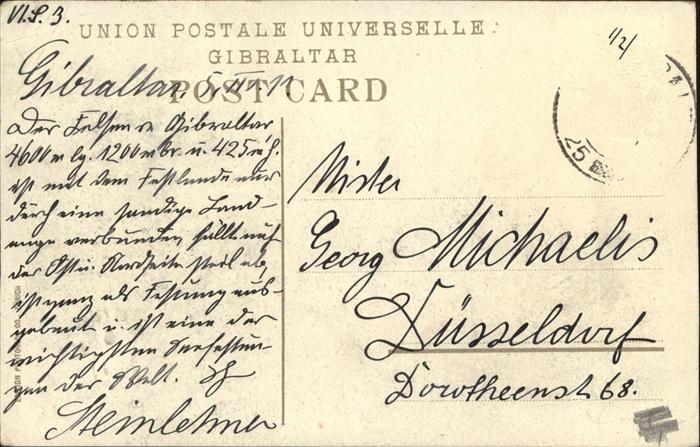 VI.S.3.
UNION POSTALE UNIVERSELLE
GIBRALTAR
POST CARD
1/2/
Gibraltar, 5. 
Der Felsen v. Gibraltar
4600 m lg. 1200 m br. u. 425 m h.
ist mit dem Festlande nur
durch eine sandige Land-
enge verbunden, fällt nach
der Ost u. Nordseite steil ab,
ist ganz als Festung aus-
gebaut u. ist eine der
wichtigsten Seefestun-
gen der Welt.
Steinlehner
Mister
Georg Michaelis
Düsseldorf
Dorotheenst. 68.
25